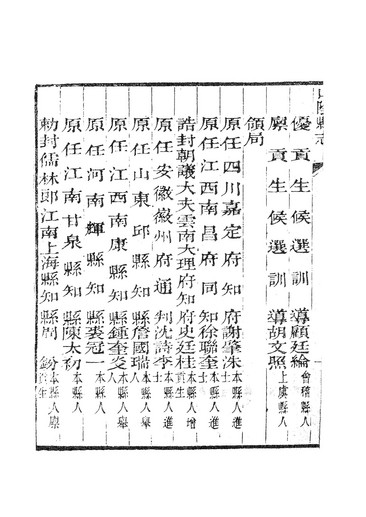 山陰縣志
優貢生候選訓導顧廷綸會稽縣人
廩貢生候選訓導胡文照上虞縣人
領局
原任四川嘉定府知府謝肇洙本縣人進士
原任江西南昌府同知徐聯奎本縣人進士
誥封朝議大夫雲南大理府知府史廷桂本縣人增貢生
原任安徽徽州府通判沈詩李本縣人進士
原任山東邱縣知縣詹國瑞本縣人舉人
原任江西南康縣知縣鍾奎炎本縣人舉人
原任河南輝縣知縣裘冠一本縣人
原任江南甘泉縣知縣陳太初本縣人
勅封儒林郎江南上海縣知縣周 本縣人廩貢生